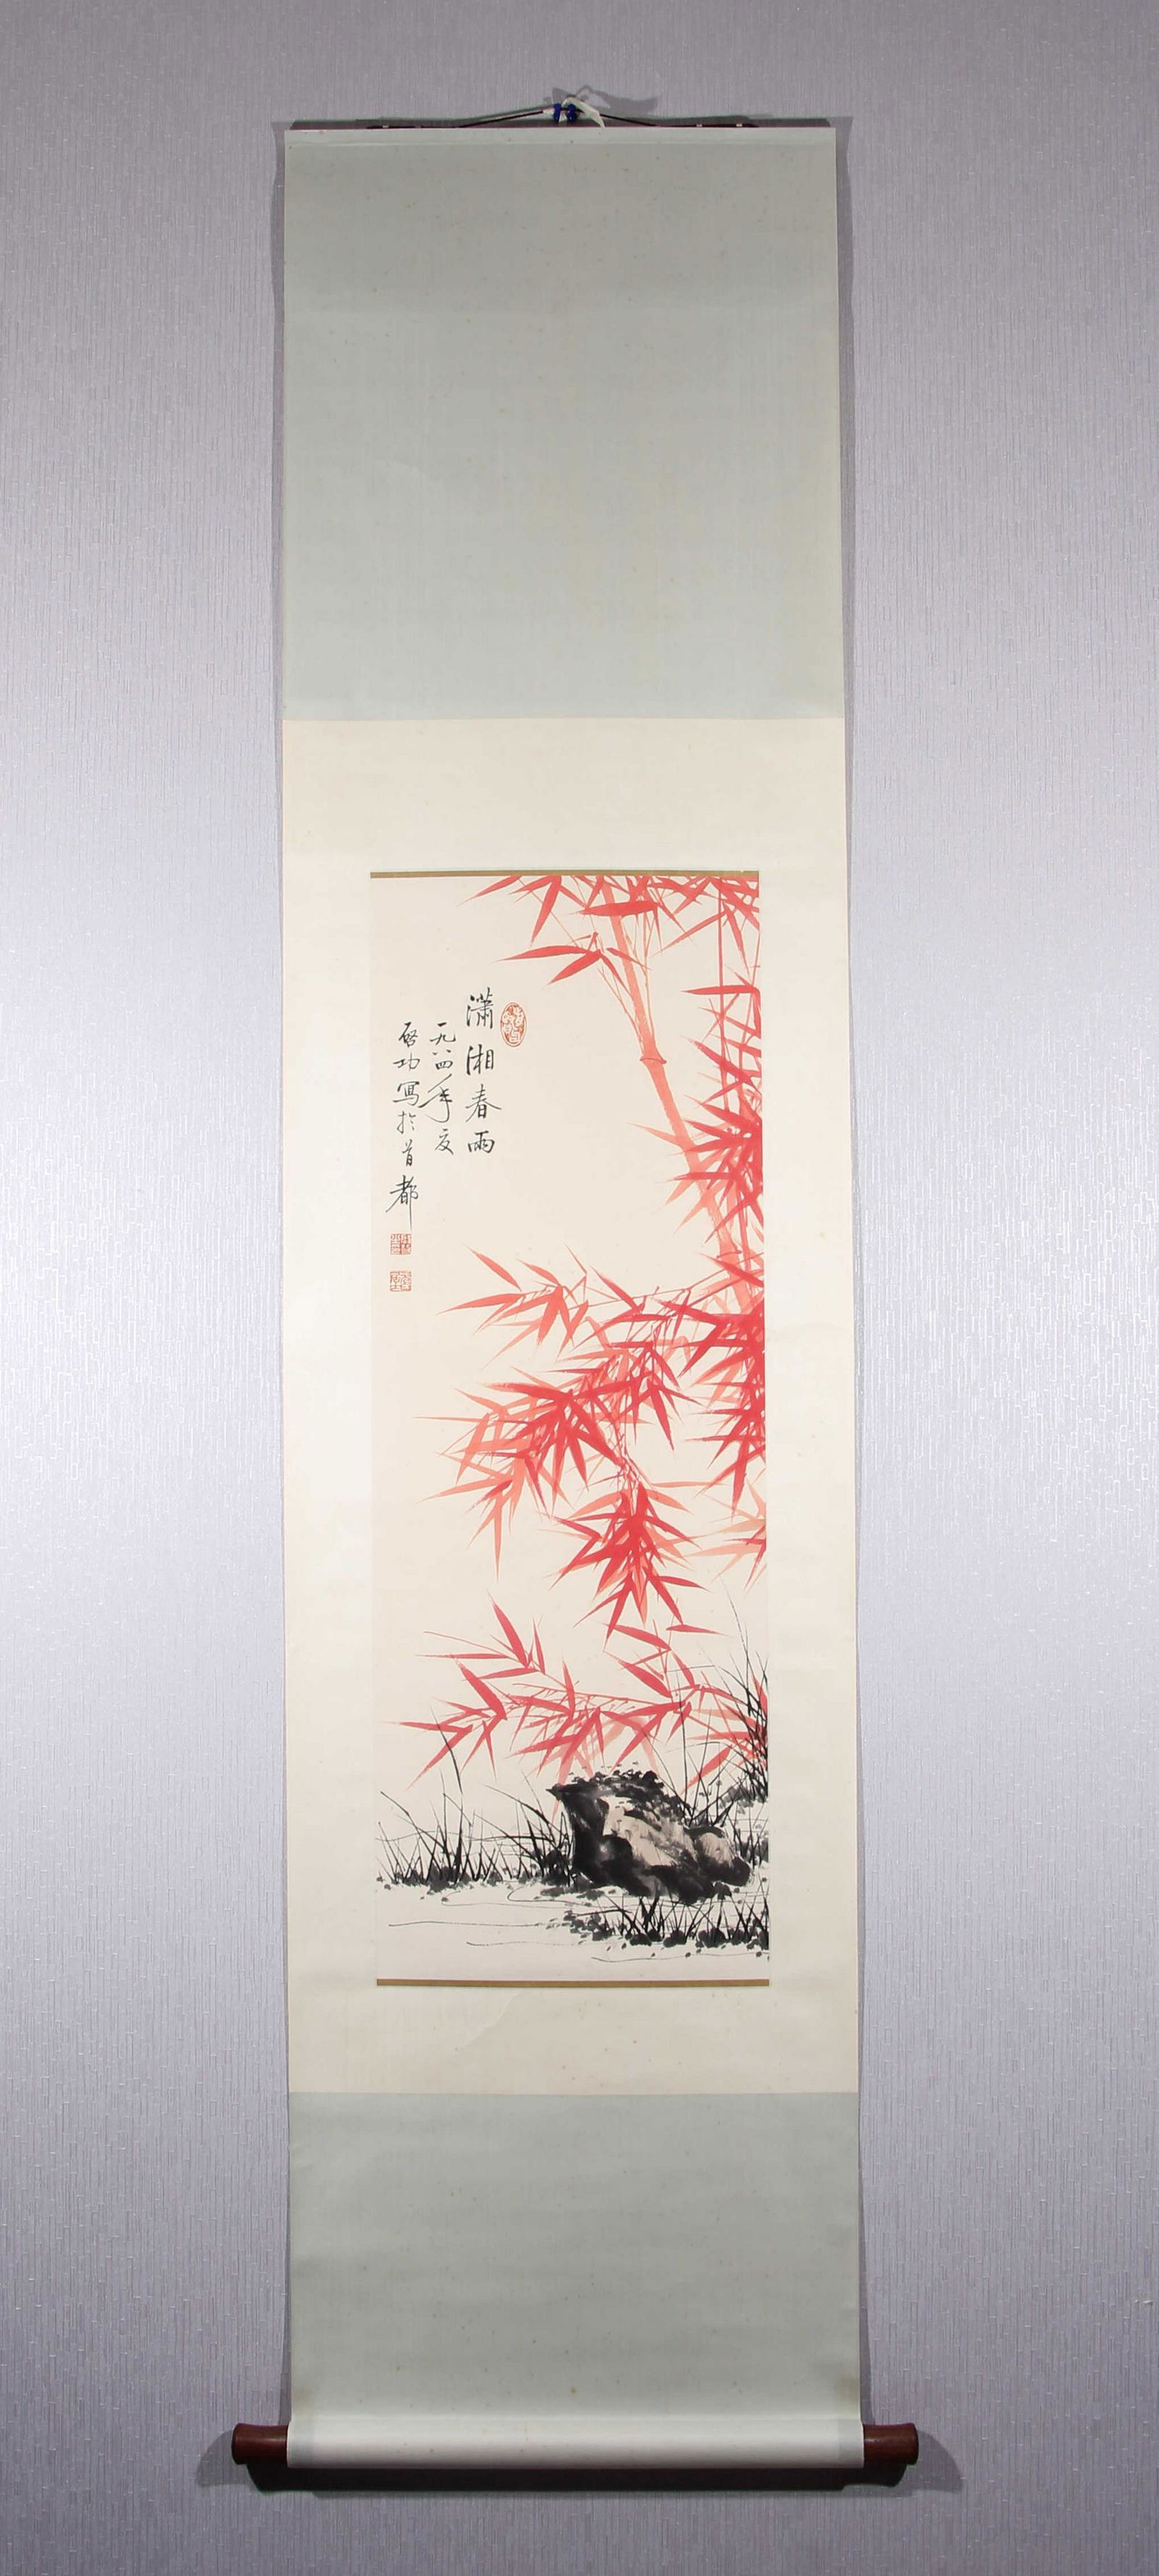 瀟湘春雨
一九八四年夏
啓功寫於首都